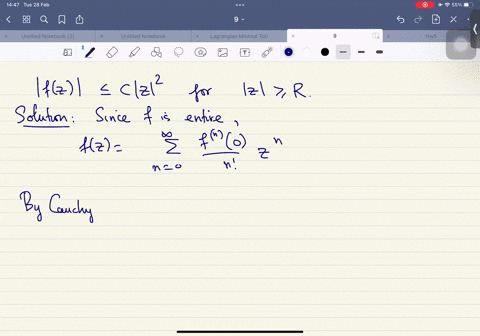 14:47 Tue 28 Feb
55%
9
Untitled Notebook (3)
Untitled Notebook
Lagrangian Minimal Toru
9
Hw5
|f(z)| ≤ C|z|² for |z| ≥ R.
Solution: Since f is entire,
f(z) = ∑_{n=0}^{∞} f^{(n)}(0)/n! z^n
By Cauchy